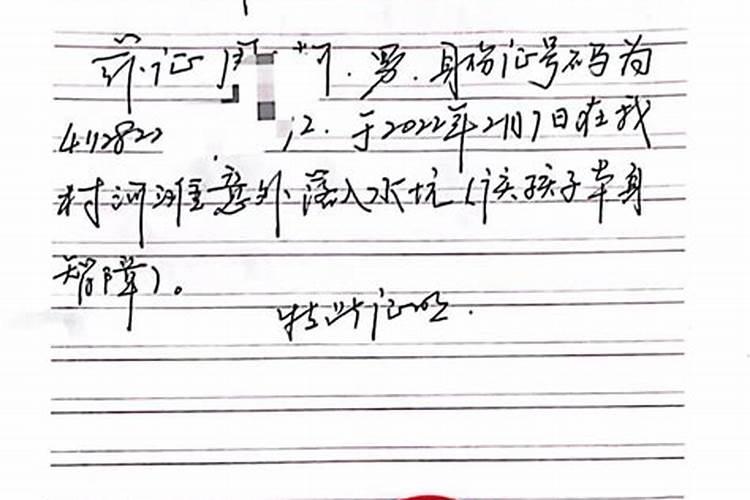 兹证 男.身份证号码为
412822 12.于2022年2月1日在我
村河滩意外落入水坑(该孩子本身
智障)。
特此证明.